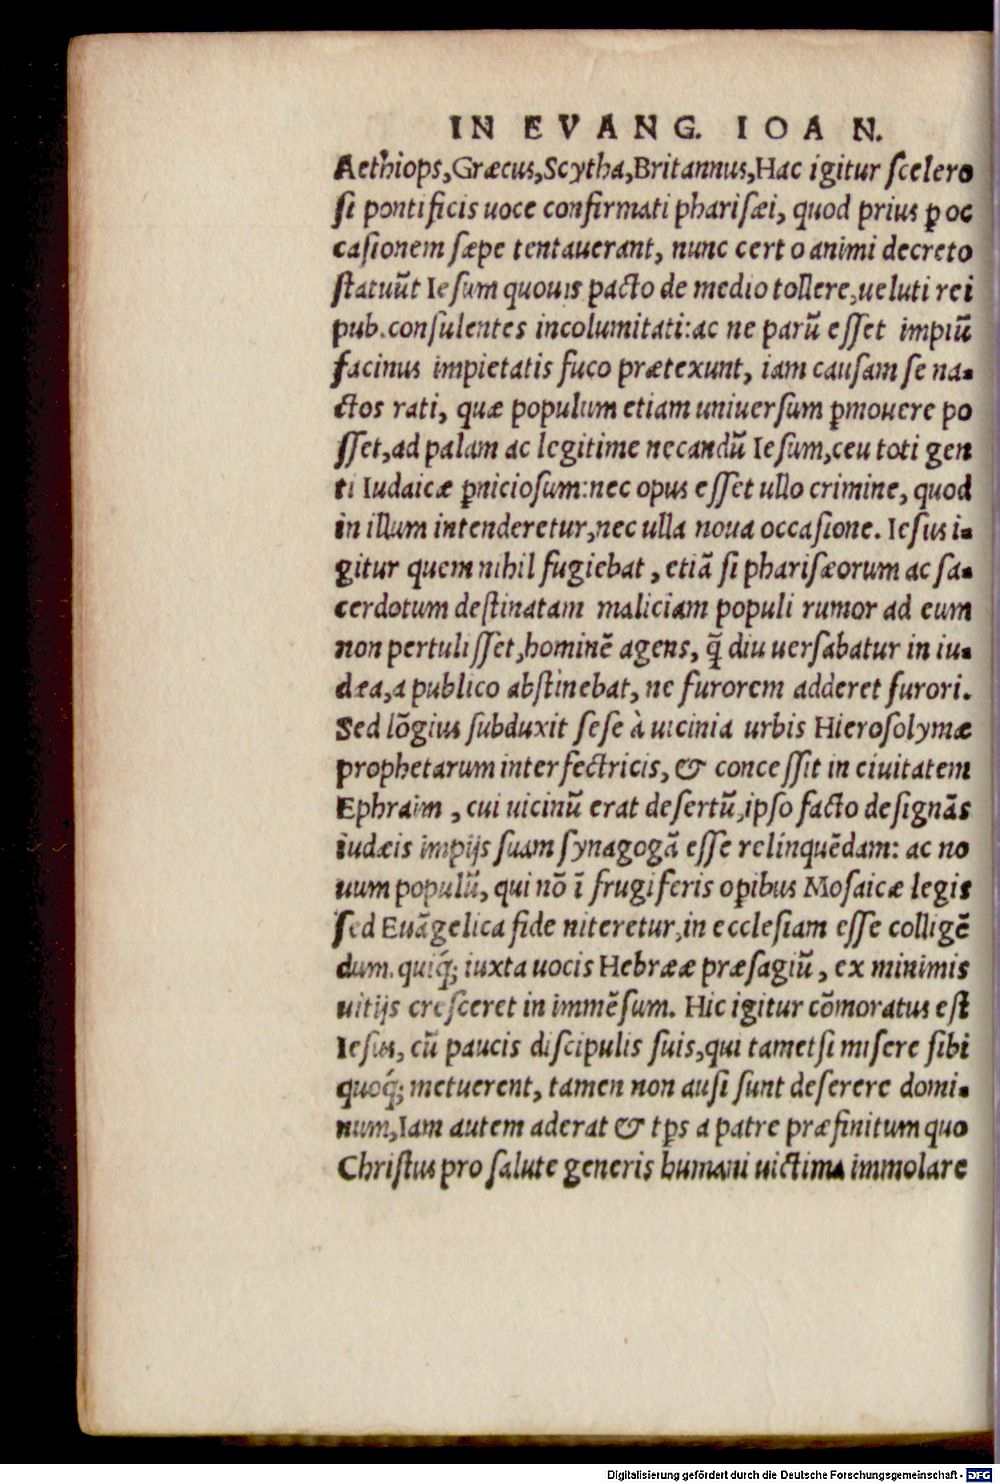 IN EVANG. IOAN.
Aethiops,Græcus,Scytha,Britannus,Hac igitur scelero
si pontificis uoce confirmati pharisæi, quod prius ꝑ oc
casionem sæpe tentauerant, nunc certo animi decreto
statuũt Iesum quouis pacto de medio tollere,ueluti rei
pub.consulentes incolumitati:ac ne parũ esset impiũ
facinus impietatis fuco prætexunt, iam causam se na-
ctos rati, quæ populum etiam uniuersum ꝑmouere po
sset,ad palam ac legitime necandũ Iesum,ceu toti gen
ti Iudaicæ ꝑniciosum:nec opus esset ullo crimine, quod
in illum intenderetur,nec ulla noua occasione. Iesus i-
gitur quem nihil fugiebat, etiã si pharisæorum ac sa-
cerdotum destinatam maliciam populi rumor ad eum
non pertulisset,hominẽ agens, q̃ diu uersabatur in iu-
dæa,a publico abstinebat, ne furorem adderet furori.
Sed lõgius subduxit sese à uicinia urbis Hierosolymæ
prophetarum interfectricis, & concessit in ciuitatem
Ephraim, cui uicinũ erat desertũ,ipso facto designãs
iudæis impijs suam synagogã esse relinquẽdam: ac no
uum populũ, qui nõ ĩ frugiferis oꝑibus Mosaicæ legis
sed Euãgelica fide niteretur,in ecclesiam esse colligẽ
dum. quiq́; iuxta uocis Hebrææ præsagiũ, ex minimis
uitijs cresceret in immẽsum. Hic igitur cõmoratus est
Iesus, cũ paucis discipulis suis,qui tametsi misere sibi
quoq́; metuerent, tamen non ausi sunt deserere domi-
num,Iam autem aderat & tꝑs a patre præfinitum quo
Christus pro salute generis humani uictima immolare
Digitalisierung gefördert durch die Deutsche Forschungsgemeinschaft - DFG